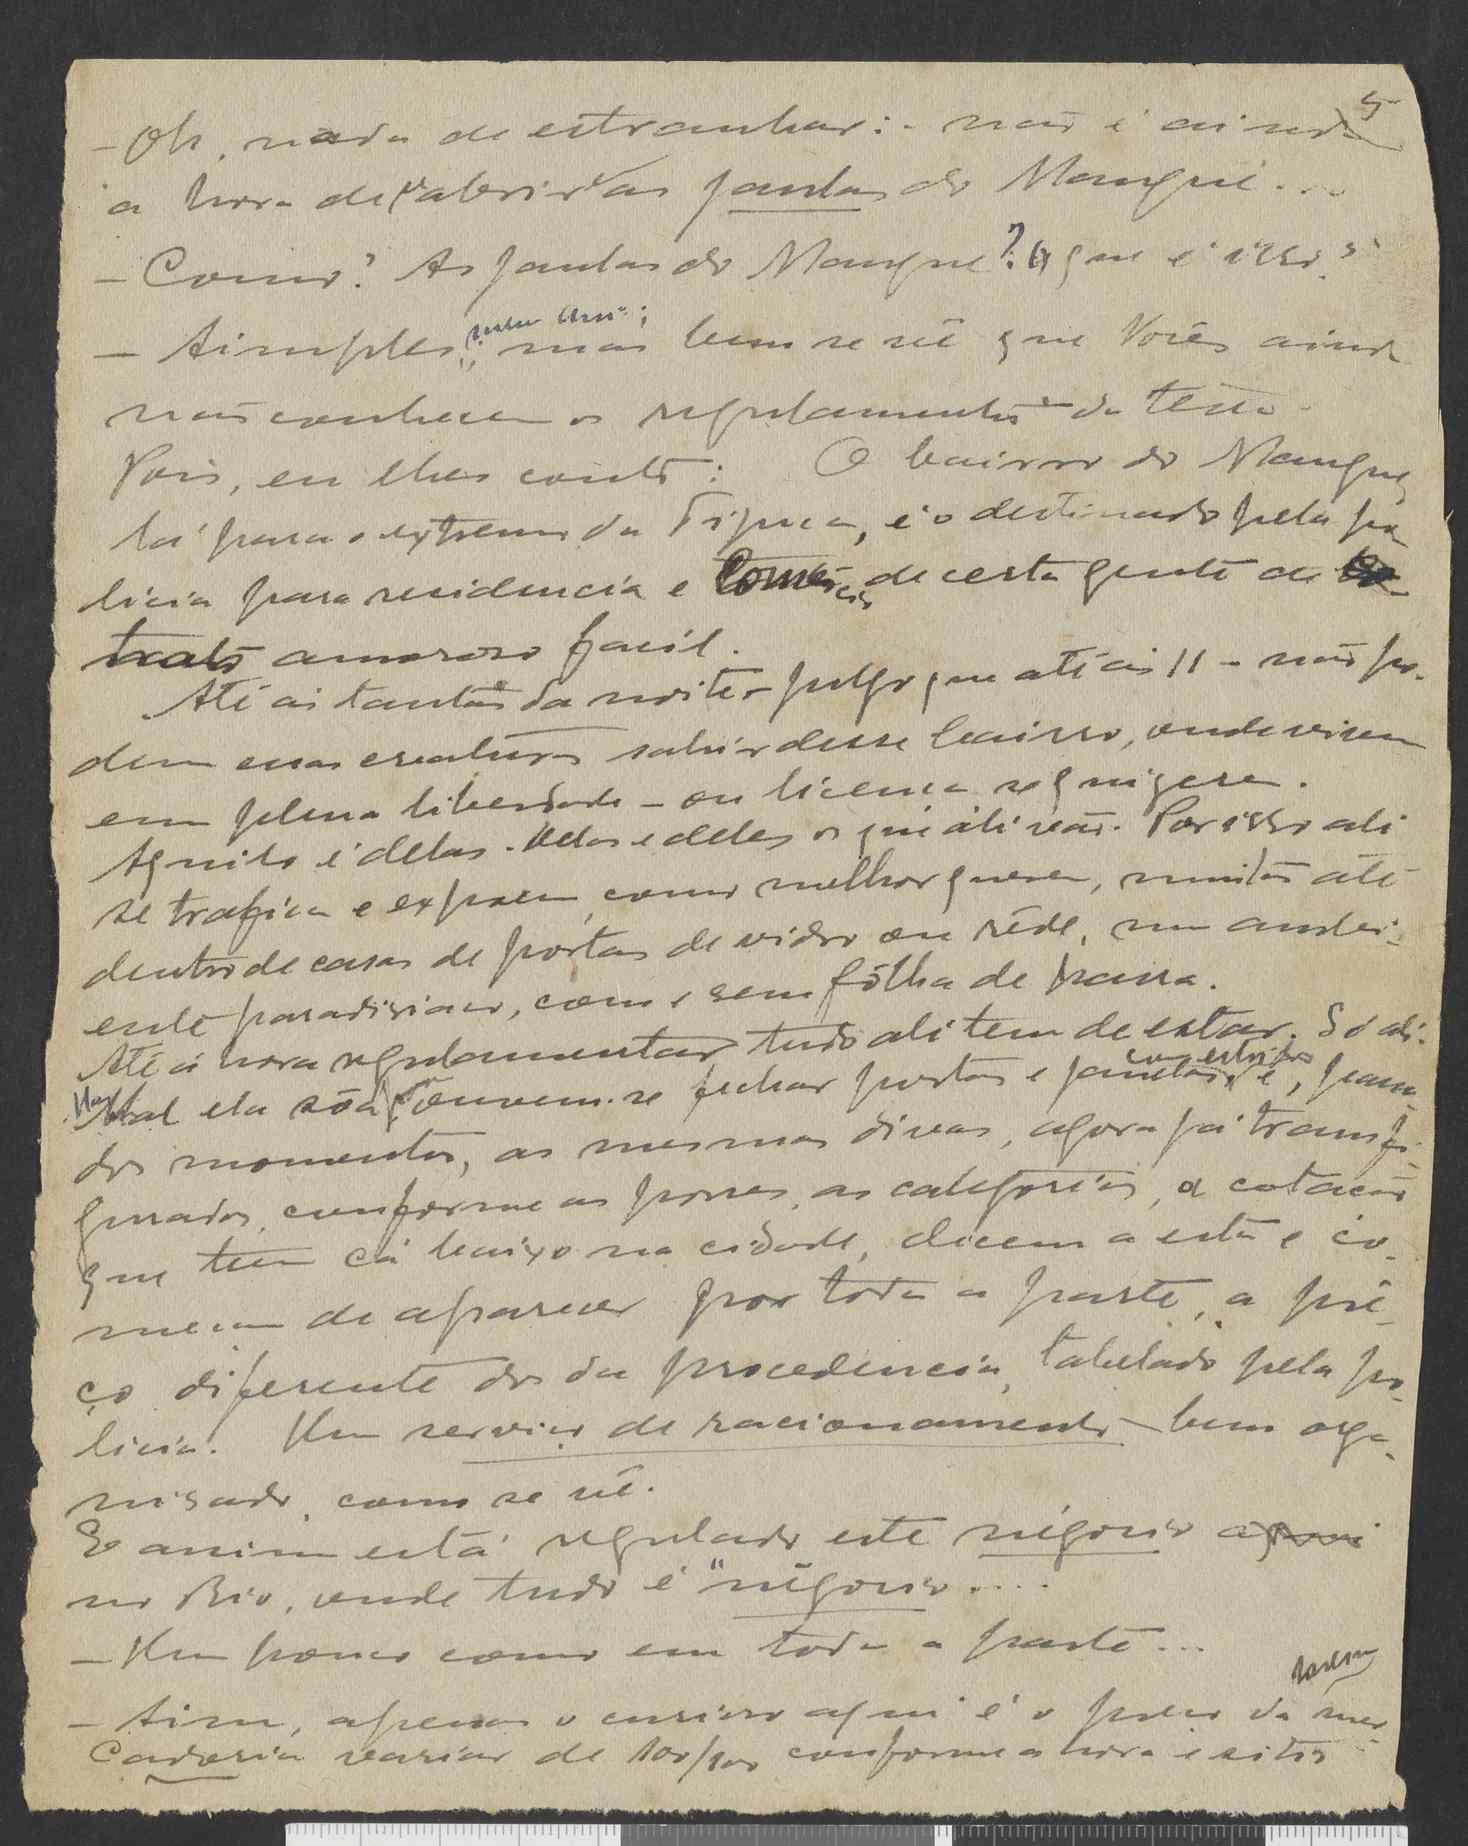 5
- Oh, nada de estranhar: - não é ainda
a hora de "abrir" as jaulas do Mangue...
- Como? As jaulas do Mangue? O que é isso?
- Simples, meu amº; mas bem se vê que Vocês ainda
não conhecem os regulamentos da terra.
Pois, eu lhes conto: O bairro do Mangue,
lá para o extremo da Tijuca, é o destinado pela po-
licia para residencia e comércio de certa gente de
trato amoroso facil.
Até ás tantas da noite - julgo que até ás 11 - não po-
dem essas creaturas sahir desse bairro, onde vivem
em plena liberdade - ou licença se quizerem.
Aquilo é delas. Delas e deles os que ali vão. Por isso ali
se trafica e expoem, como melhor querem, muitas até
dentro de casas de portas de vidro ou rêde, num ambi-
ente paradisiaco, com e sem fôlha de parra.
Até á hora regulamentar tudo ali tem de estar. Só ali.
Mal ela sôa, ouvem-se fechar portas e janelas, com estrondo e, passa-
dos momentos, as mesmas divas, agora já transfi-
guradas, conforme as posses, as categorias, a cotação
que têm cá baixo na cidade, descem a esta e co-
meçam de aparecer por toda a parte, a prê-
ço diferente do da procedencia, tabelado pela po-
licia. Um serviço de racionamento bem orga-
nisado, como se vê.
E assim está regulado este négocio aqui
no Rio, onde tudo é "négocio....
- Um pouco como em toda a parte...
- Sim, apenas o curioso aqui é o preço da mer-
cadoria variar de 100/100 conforme a hora e sitio